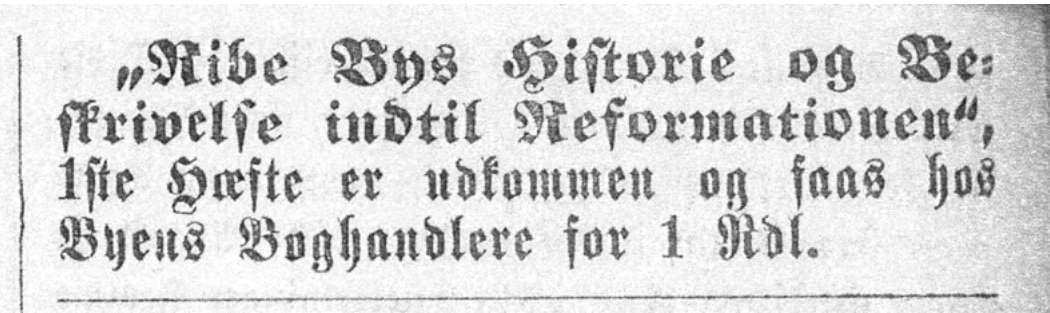 „Ribe Bys Historie og Be-
skrivelse indtil Reformationen“,
1ste Hæfte er udkommen og faas hos
Byens Boghandlere for 1 Rdl.